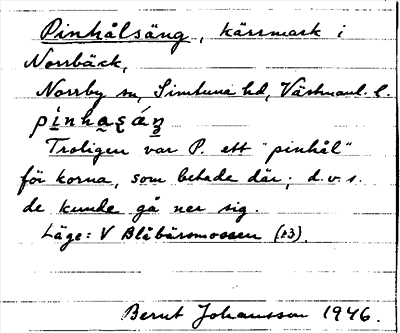 Pinhålsäng, kärrmark i
Norrbäck,
Norrby sn, Simtuna hd, Västmanl. l.
Troligen var P. ett "pinhål"
för korna, som betade där; d.v.s.
de kunde gå ner sig.
Läge: V Blåbärsmossen (13).
Bernt Johansson 1946.